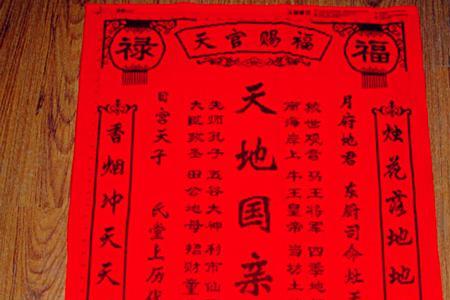 天官赐福
福
禄
烛花落地地
月府地君 东厨司命灶王
救世观音马王将军 四季地
南海岸上 牛王皇帝 当坊土
天地国亲
先师孔子 五谷大神 利市仙
大成致圣 田公地母 招财童
日宫天子 氏堂上历代
香烟冲天天